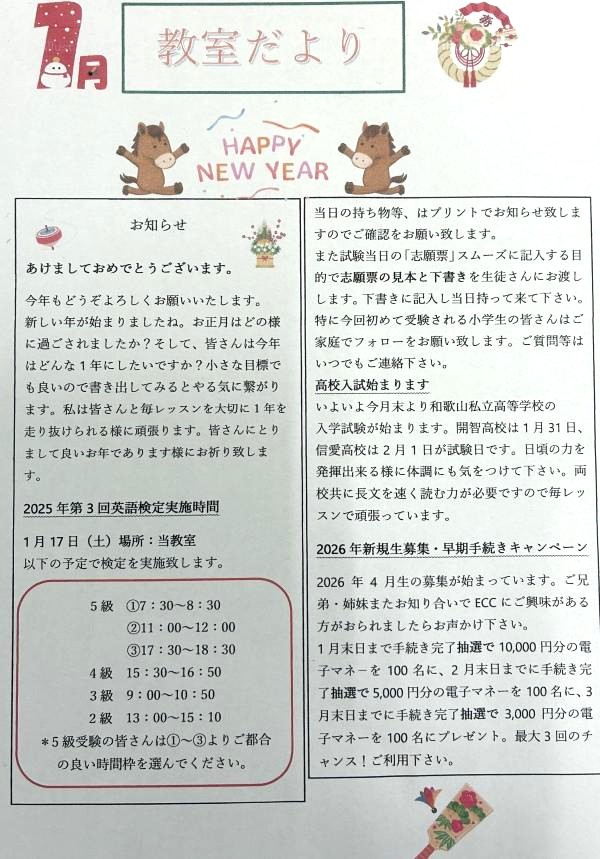 1月
教室だより
寿
HAPPY
NEW YEAR
お知らせ
あけましておめでとうございます。
今年もどうぞよろしくお願いいたします。
新しい年が始まりましたね。お正月はどの様
に過ごされましたか？そして、皆さんは今年
はどんな1年にしたいですか？小さな目標で
も良いので書き出してみるとやる気に繋がり
ます。私は皆さんと毎レッスンを大切に1年を
走り抜けられる様に頑張ります。皆さんにとり
まして良いお年であります様にお祈り致しま
す。
2025年第3回英語検定実施時間
1月17日（土）場所：当教室
以下の予定で検定を実施致します。
5級 ①7：30～8：30
②11：00～12：00
③17：30～18：30
4級 15：30～16：50
3級 9：00～10：50
2級 13：00～15：10
＊5級受験の皆さんは①～③よりご都合
の良い時間枠を選んでください。
当日の持ち物等、はプリントでお知らせ致しま
すのでご確認をお願い致します。
また試験当日の「志願票」スムーズに記入する目
的で志願票の見本と下書きを生徒さんにお渡し
します。下書きに記入し当日持って来て下さい。
特に今回初めて受験される小学生の皆さんはご
家庭でフォローをお願い致します。ご質問等は
いつでもご連絡下さい。
高校入試始まります
いよいよ今月末より和歌山私立高等学校の
入学試験が始まります。開智高校は1月31日、
信愛高校は2月1日が試験日です。日頃の力を
発揮出来る様に体調にも気をつけて下さい。両
校共に長文を速く読む力が必要ですので毎レッ
スンで頑張っています。
2026年新規生募集・早期手続きキャンペーン
2026年4月生の募集が始まっています。ご兄
弟・姉妹またお知り合いでECCにご興味がある
方がおられましたらお声かけ下さい。
1月末日まで手続き完了抽選で10,000円分の電
子マネーを100名に、2月末日までに手続き完
了抽選で5,000円分の電子マネーを100名に、3
月末日までに手続き完了抽選で3,000円分の電
子マネーを100名にプレゼント。最大3回のチ
ャンス！ご利用下さい。